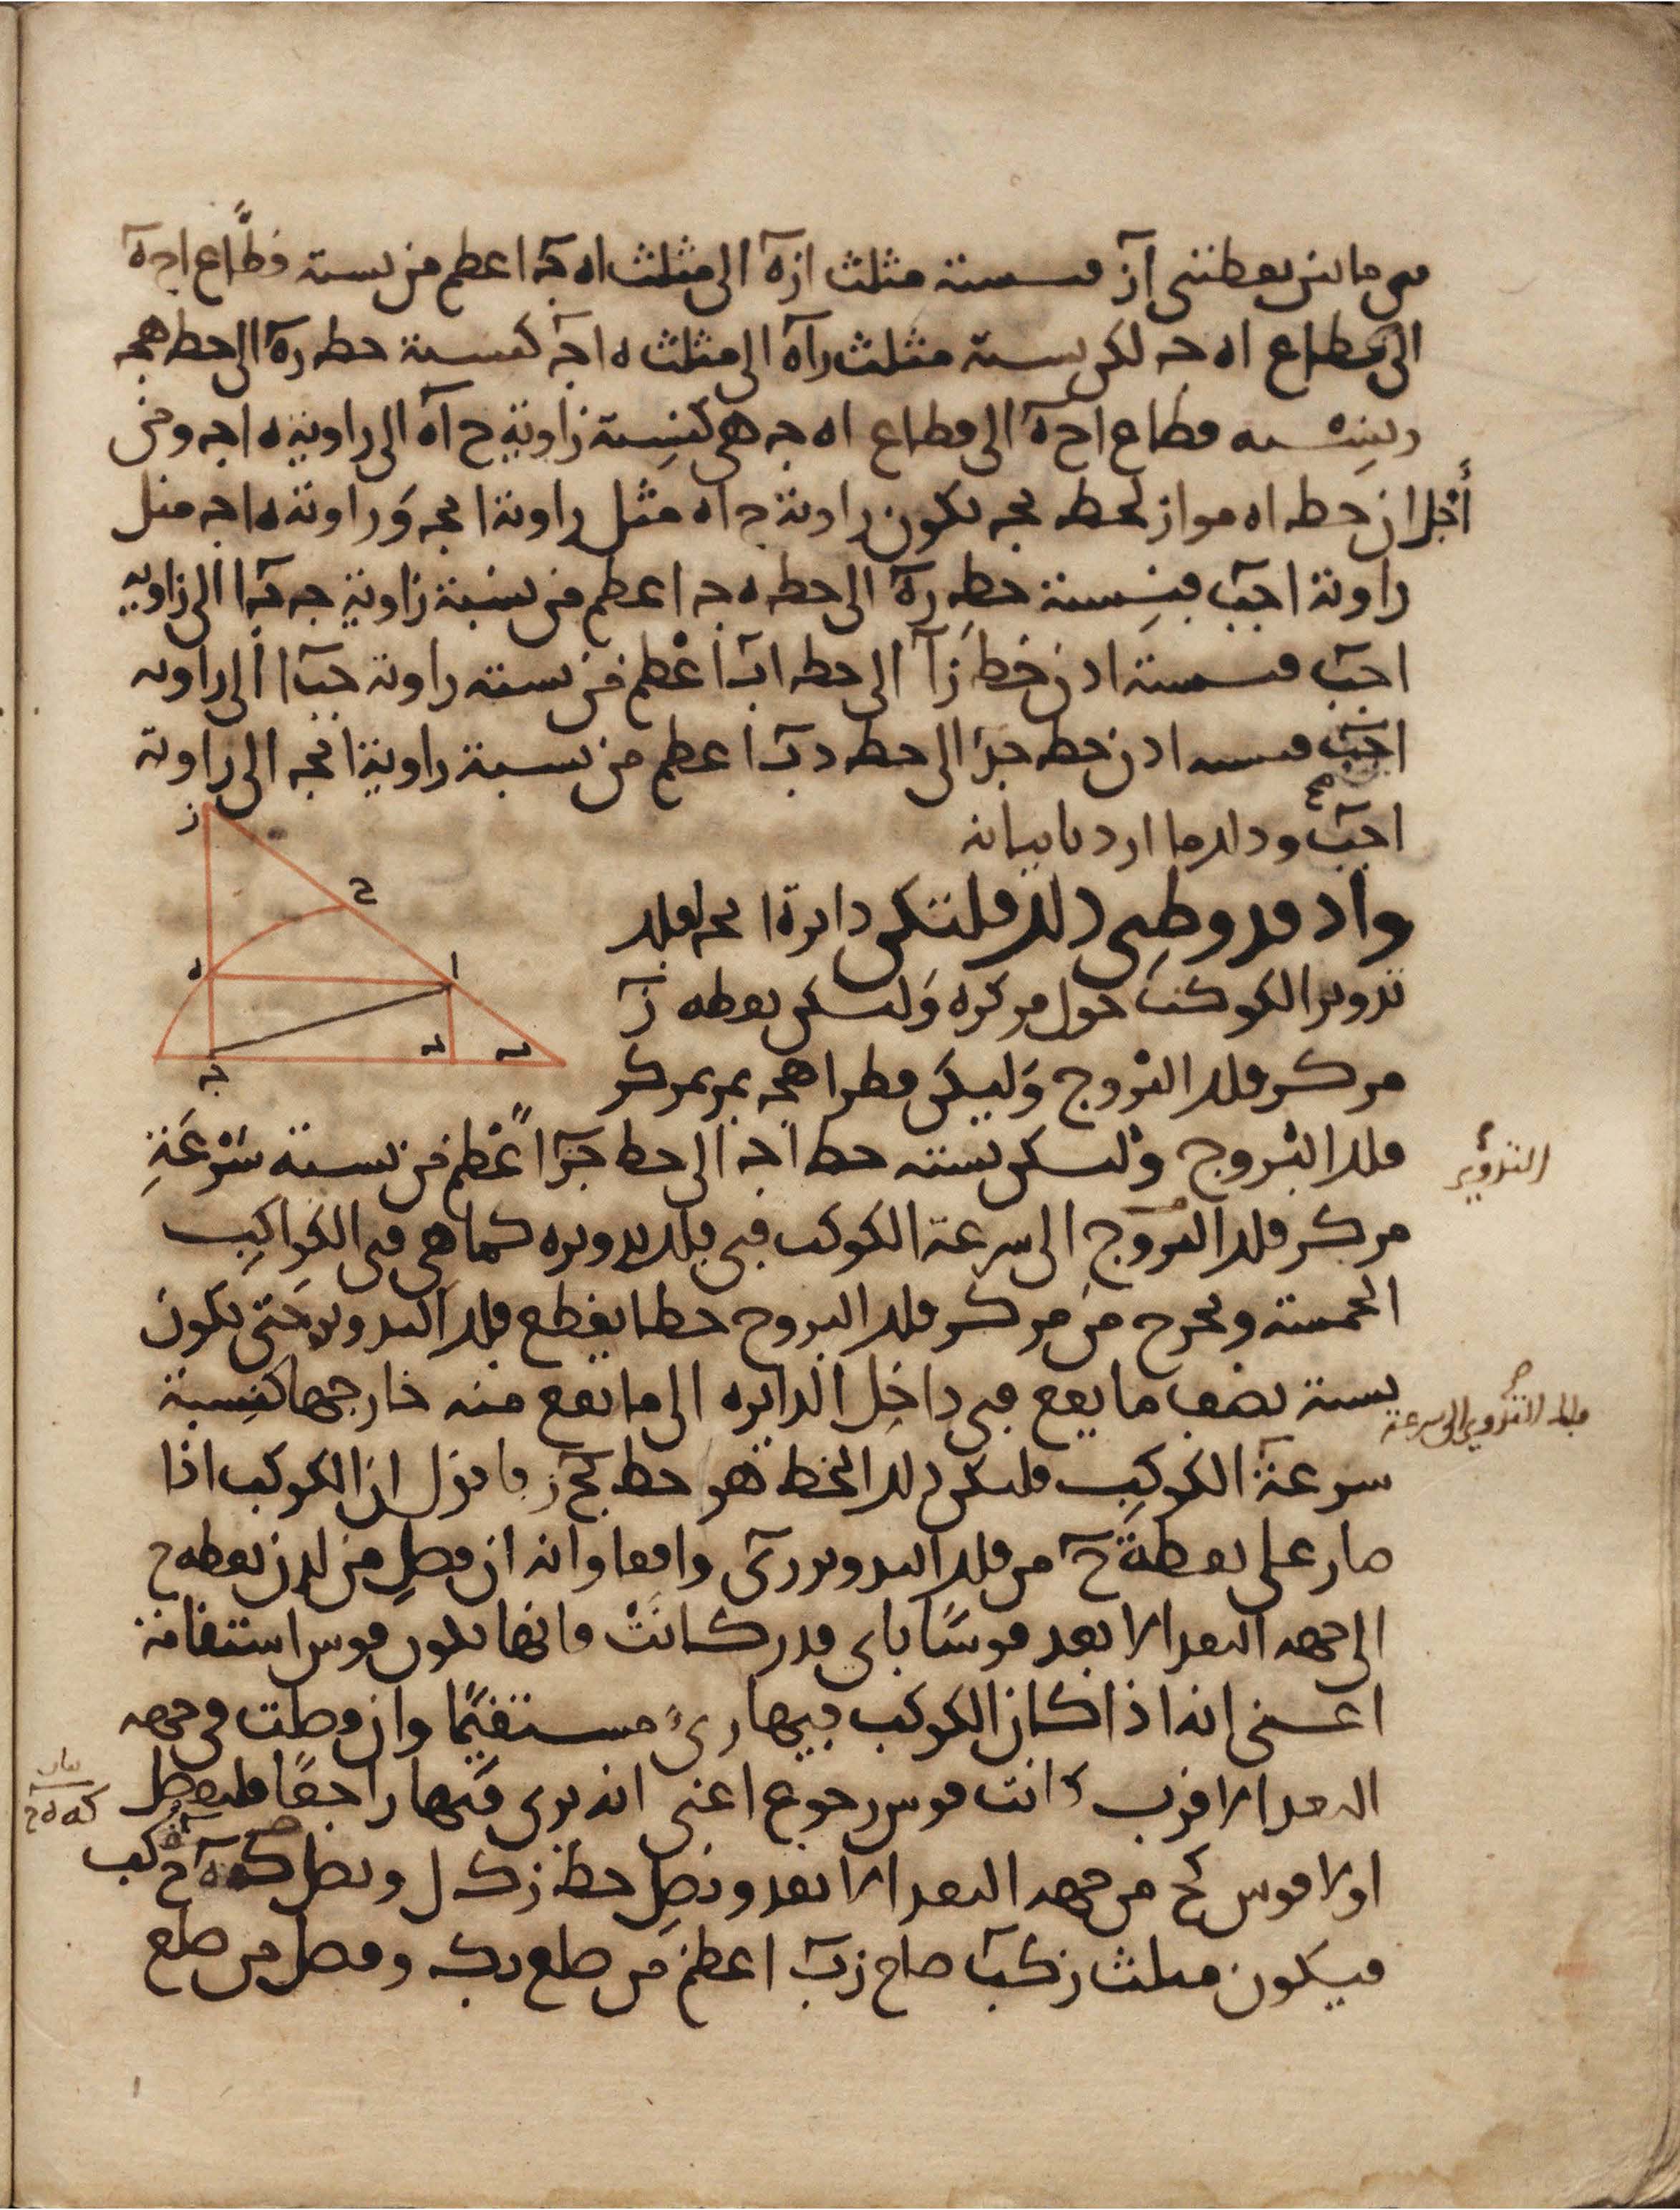 فى ما بين نقطتى آز فنسبة مثلث ازه الى مثلث اه جه اعظم من نسبة قطاع احه
الى قطاع اه حه لكن نسبة مثلث زآه الى مثلث ه اجه كنسبة خط زه الى خط هجه
ونسبة قطاع احه الى قطاع اه جه هى كنسبة زاوية ح آه الى زاوية ه اجه ومن
أجل ان خط اه مواز لخط بجه تكون زاوية ح اه مثل زاوية ا بجه وزاوية ه اجه مثل
زاوية اجب فنسبة خط زه الى خط ه جه اعظم من نسبة زاوية جه با الى زاوية
اجب فنسبة اذن خط زآ الى خط اب اعظم من نسبة زاوية جبا الى زاوية
اجب فنسبة اذن خط جد الى خط دب اعظم من نسبة زاوية ابجه الى زاوية
اجب وذلك ما اردنا بيانه
واذ قد وطى ذلك فلتكن دايرة ا بجه لفلك
تدوير الكوكب حول مركزه وليكن نقطه ز
مركز فلك البروج وليكن قطر اهجه يمر بمركز
فلك البروج ولتكن نسبة خط اجه الى خط جز اعظم من نسبة سرعة
التدوير
مركز فلك البروج الى سرعة الكوكب فى فلك تدويره كما هى فى الكواكب
الخمسة ونخرج من مركز فلك البروج خطا يقطع فلك التدوير حتى تكون
نسبة نصف ما يقع فى داخل الدايره الى ما يقع منه خارجها كنسبة
فلك التدوير الى سرعة
سرعة الكوكب فليكن ذلك الخط هو خط بحز فاقول ان الكوكب اذا
صار على نقطة ح من فلك التدوير رىء واقفا وانه ان فصل من لدن نقطه ح
الى جهه البعد الابعد قوسا باى قدر كانت فانها تكون قوس استقامة
اعنى انه اذا كان الكوكب فيها رىء مستقيما وان فصلت فى جهه
البعد الاقرب كانت قوس رجوع اعنى انه يرى فيها راجعا فلنفصل
اولا قوس كح من جهه البعد الابعد ونصل خط زك ل ونصل كب
فيكون مثلث زكب ضلع زب اعظم من ضلع زك وفصل من ضلع
ز
ح
ا
ه
د
ب
جه